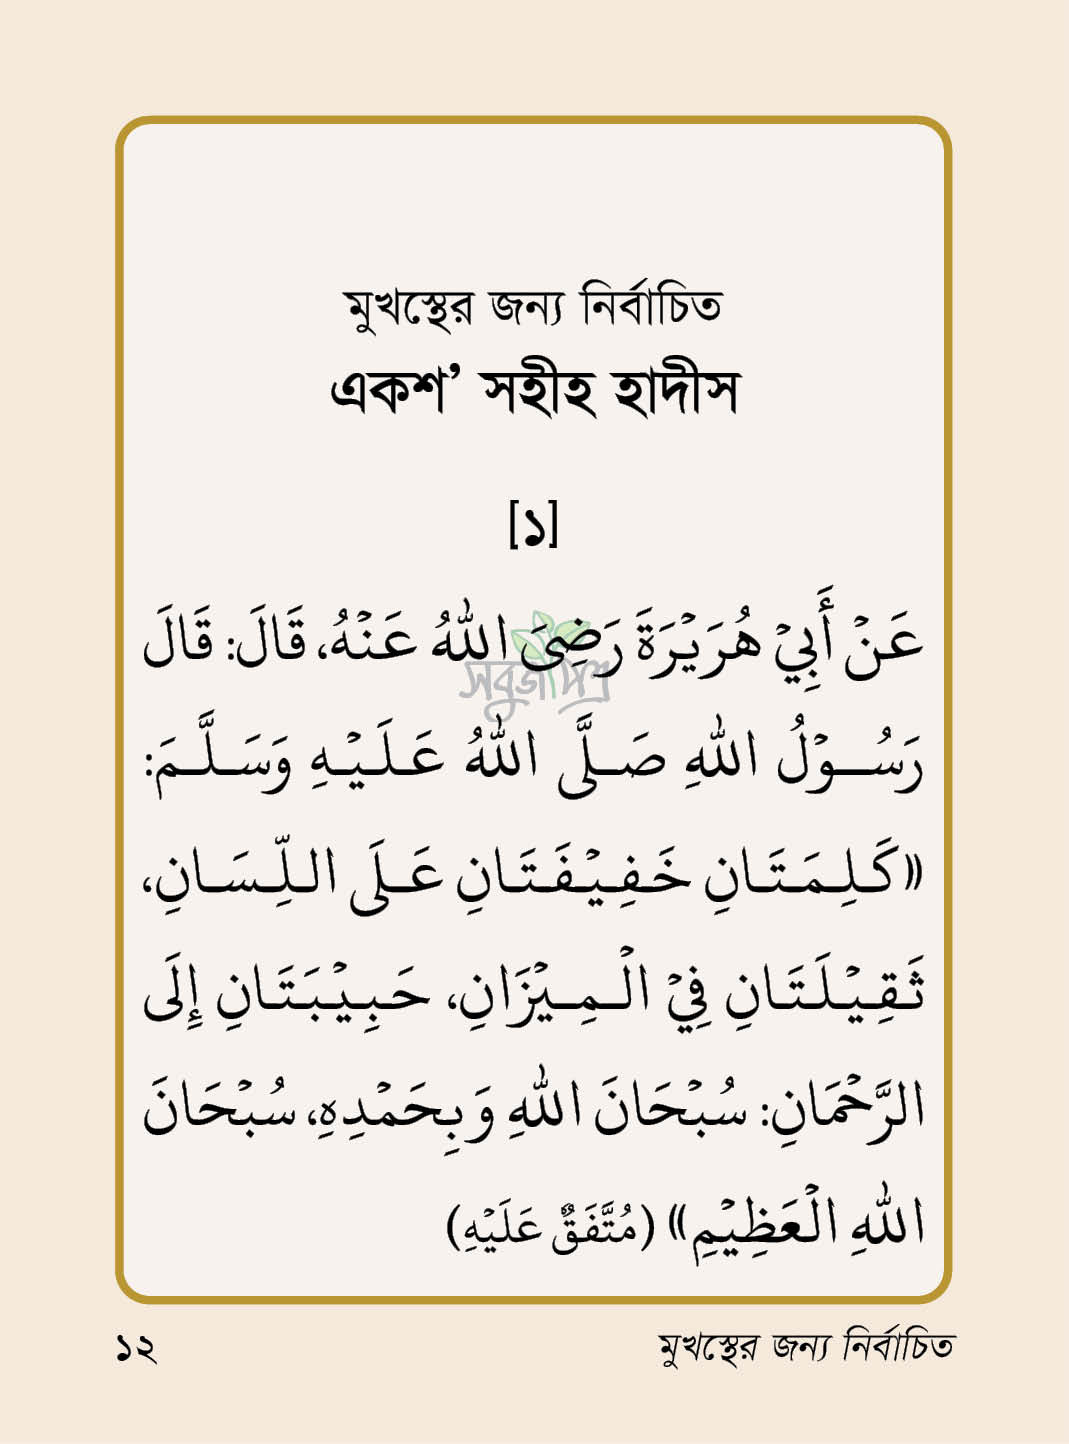 মুখস্থের জন্য নির্বাচিত
একশ’ সহীহ হাদীস
[১]
عَنْ أَبِيْ هُرَيْرَةَ رَضِيَ اللهُ عَنْهُ، قَالَ: قَالَ
رَسُـــوْلُ اللهِ صَـلَّى اللهُ عَـلَـيْـهِ وَسَـلَّـمَ:
«كَـلِـمَـتَـانِ خَـفِـيْـفَـتَـانِ عَـلَى الـلِّـسَـانِ،
ثَـقِـيْـلَـتَـانِ فِيْ الْـمِـيْزَانِ، حَـبِـيْـبَـتَـانِ إِلَى
الرَّحْمَانِ: سُبْحَانَ اللهِ وَبِحَمْدِهِ، سُبْحَانَ
اللهِ الْعَظِيْمِ» (مُتَّفَقٌ عَلَيْهِ)
সবুজপত্র
১২ মুখস্থের জন্য নির্বাচিত